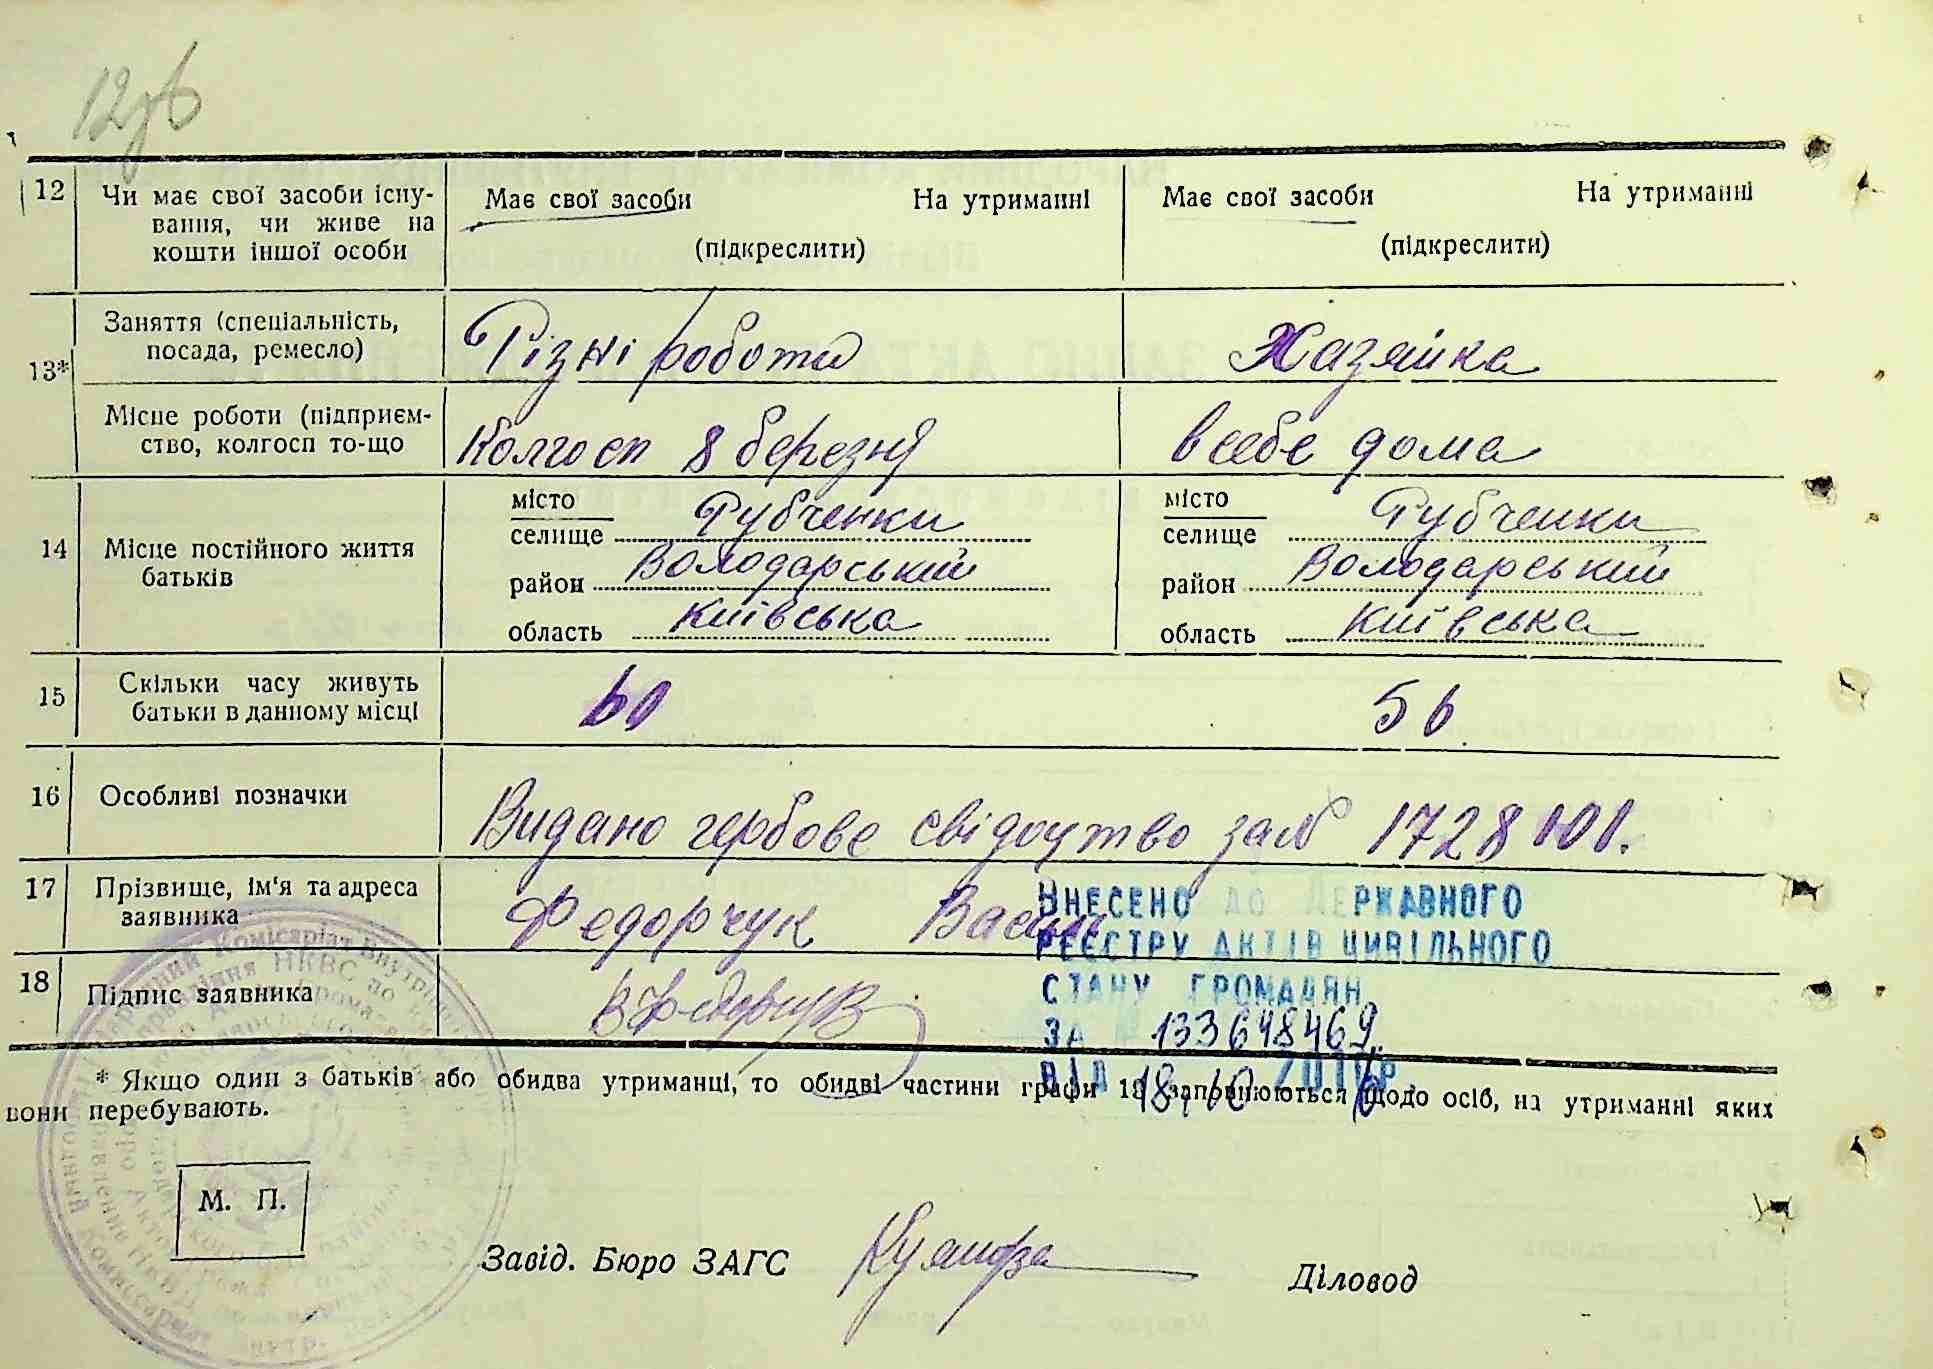 12
Чи має свої засоби існу-
вання, чи живе на
кошти іншої особи
Має свої засоби На утриманні
(підкреслити)
Має свої засоби На утриманні
(підкреслити)
13*
Заняття (спеціальність,
посада, ремесло)
Різні роботи
Хазяйка
Місце роботи (підприєм-
ство, колгосп то-що
Колгосп 8 березня
в себе дома
14
Місце постійного життя
батьків
місто
селище Рубченки
район Володарський
область Київська
місто
селище Рубченки
район Володарський
область Київська
15
Скільки часу живуть
батьки в данному місці
60
56
16
Особливі позначки
Видано гербове свідоцтво за № 1728101.
17
Прізвище, ім'я та адреса
заявника
Федорчук Василь
18
Підпис заявника
ВНЕСЕНО ДО ДЕРЖАВНОГО
РЕЄСТРУ АКТІВ ЦИВІЛЬНОГО
СТАНУ ГРОМАДЯН
ЗА № 133648469
ВІД 18.10 2016р.
* Якщо один з батьків або обидва утриманці, то обидві частини графи 13 заповнюються щодо осіб, на утриманні яких
вони перебувають.
М. П.
Завід. Бюро ЗАГС
Діловод